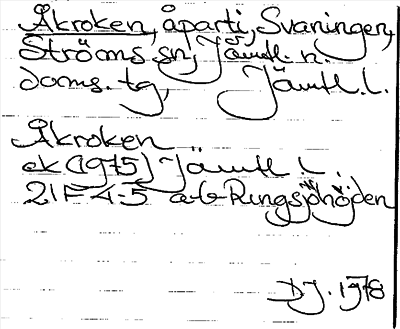 Åkroken, åparti, Svaningen,
Ströms sn, Jämtl. n.
doms. tg, Jämtl. l.
Åkroken
ek (1975) Jämtl. L.
21F 4-5 a-b Rungsjöhöjden
DJ. 1978